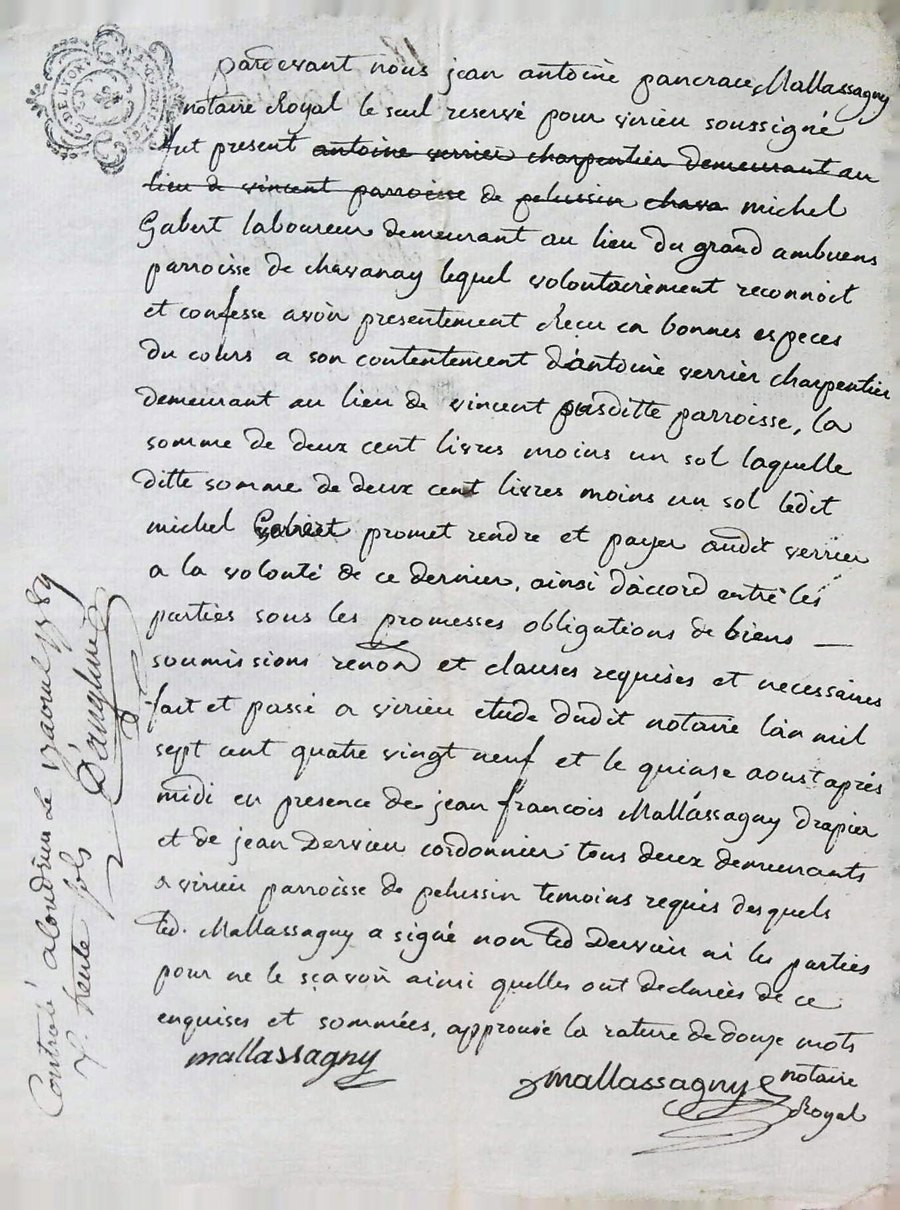 pardevant nous jean antoine pancrace Mallassagny
notaire Royal le seul reservé pour virieu soussigné
fut present antoine verrier charpentier demeurant au
lieu de vincent parroisse de pelussin chava michel
Gabert laboureur demeurant au lieu du grand ambuens
parroisse de chavanay lequel volontairement reconnoit
et confesse avoir presentement Reçu en bonnes especes
du cours a son contentement d'antoine verrier charpentier
demeurant au lieu de vincent susditte parroisse, la
somme de deux cent livres moins un sol laquelle
ditte somme de deux cent livres moins un sol ledit
michel Gabert promet rendre et payer audit verrier
a la volonté de ce dernier, ainsi d'accord entre les
parties sous les promesses obligations de biens —
soumissions renon et clauses requises et necessaires
fait et passé a virieu etude dudit notaire l'an mil
sept cent quatre vingt neuf et le quinse aoust après
midi en presence de jean françois Mallassagny drapier
et de jean Dervieu cordonnier tous deux demeurants
a virieu parroisse de pelussin temoins requis desquels
led. Mallassagny a signé non led Dervieu ni les parties
pour ne le sçavoir ainsi quelles ont declarées de ce
enquises et sommées, approuvé la rature de douze mots
mallassagny
mallassagny notaire
Royal
Controllé a Condrieu le aoust 1789
R. trente sols